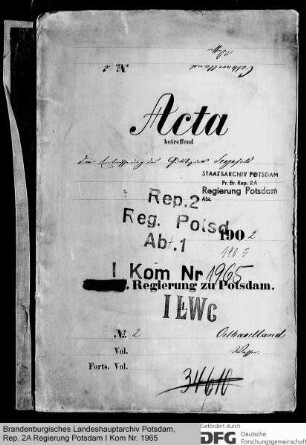 Osthavelland
No 2
Acta
betreffend
die
des
STAATSARCHIV POTSDAM
Pr. Br. Rep. 2A
Regierung Potsdam
Abt.
Rep.2
Reg. Potsd.
Abt.1
1902
I Kom Nr 1965
Regierung zu Potsdam.
I LWG
No. 2
Osthavelland
Vol.
Forts. Vol.
Brandenburgisches Landeshauptarchiv Potsdam,
Rep. 2A Regierung Potsdam I Kom Nr. 1965
Gefördert durch
DFG Deutsche
Forschungsgemeinschaft